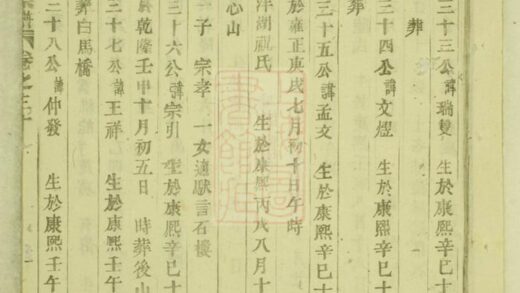 三十三公諱瑞雙 生於康熙辛巳十
葬
三十四公諱文煜 生於康熙辛巳十
葬
三十五公諱孟文 生於康熙辛巳十
於雍正庚戌七月初十日午時
洋湖祝氏 生於康熙丙戌八月十
心山
一子 宗孝 一女適猷言石樓
三十六公諱宗引 生於康熙辛巳十
於乾隆壬申十月初五日 時葬後山
三十七公諱王祥 生於康熙壬午
葬白馬橋
三十八公諱仲發 生於康熙壬午
卷之
書館